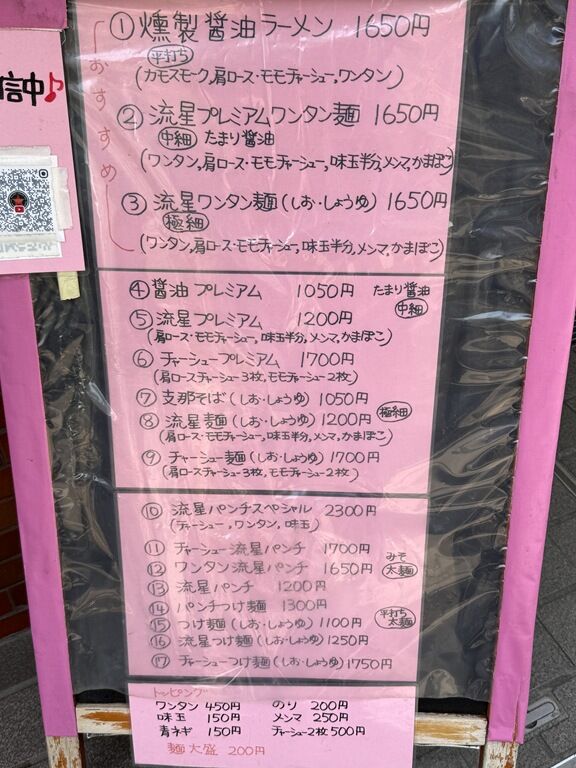 信中♪
おすすめ
① 燻製醤油ラーメン 1650円
平打ち
(カモスモーク,肩ロース・モモチャーシュー,ワンタン)
② 流星プレミアムワンタン麺 1650円
中細 たまり醤油
(ワンタン,肩ロース・モモチャーシュー,味玉半分,メンマ,かまぼこ)
③ 流星ワンタン麺(しお・しょうゆ) 1650円
極細
(ワンタン,肩ロース・モモチャーシュー,味玉半分,メンマ,かまぼこ)
④ 醤油プレミアム 1050円 たまり醤油
⑤ 流星プレミアム 1200円 中細
(肩ロース・モモチャーシュー,味玉半分,メンマ,かまぼこ)
⑥ チャーシュープレミアム 1700円
(肩ロースチャーシュー3枚,モモチャーシュー2枚)
⑦ 支那そば(しお・しょうゆ) 1050円
⑧ 流星麺(しお・しょうゆ) 1200円 極細
(肩ロース・モモチャーシュー,味玉半分,メンマ,かまぼこ)
⑨ チャーシュー麺(しお・しょうゆ) 1700円
(肩ロースチャーシュー3枚,モモチャーシュー2枚)
⑩ 流星パンチスペシャル 2300円
(チャーシュー,ワンタン,味玉)
⑪ チャーシュー流星パンチ 1700円 みそ
⑫ ワンタン流星パンチ 1650円 太麺
⑬ 流星パンチ 1200円
⑭ パンチつけ麺 1300円 平打ち
⑮ つけ麺(しお・しょうゆ) 1100円 太麺
⑯ 流星つけ麺(しお・しょうゆ) 1250円
⑰ チャーシューつけ麺(しお・しょうゆ) 1750円
トッピング
ワンタン 450円 のり 200円
味玉 150円 メンマ 250円
青ネギ 150円 チャーシュー2枚 500円
麺大盛 200円